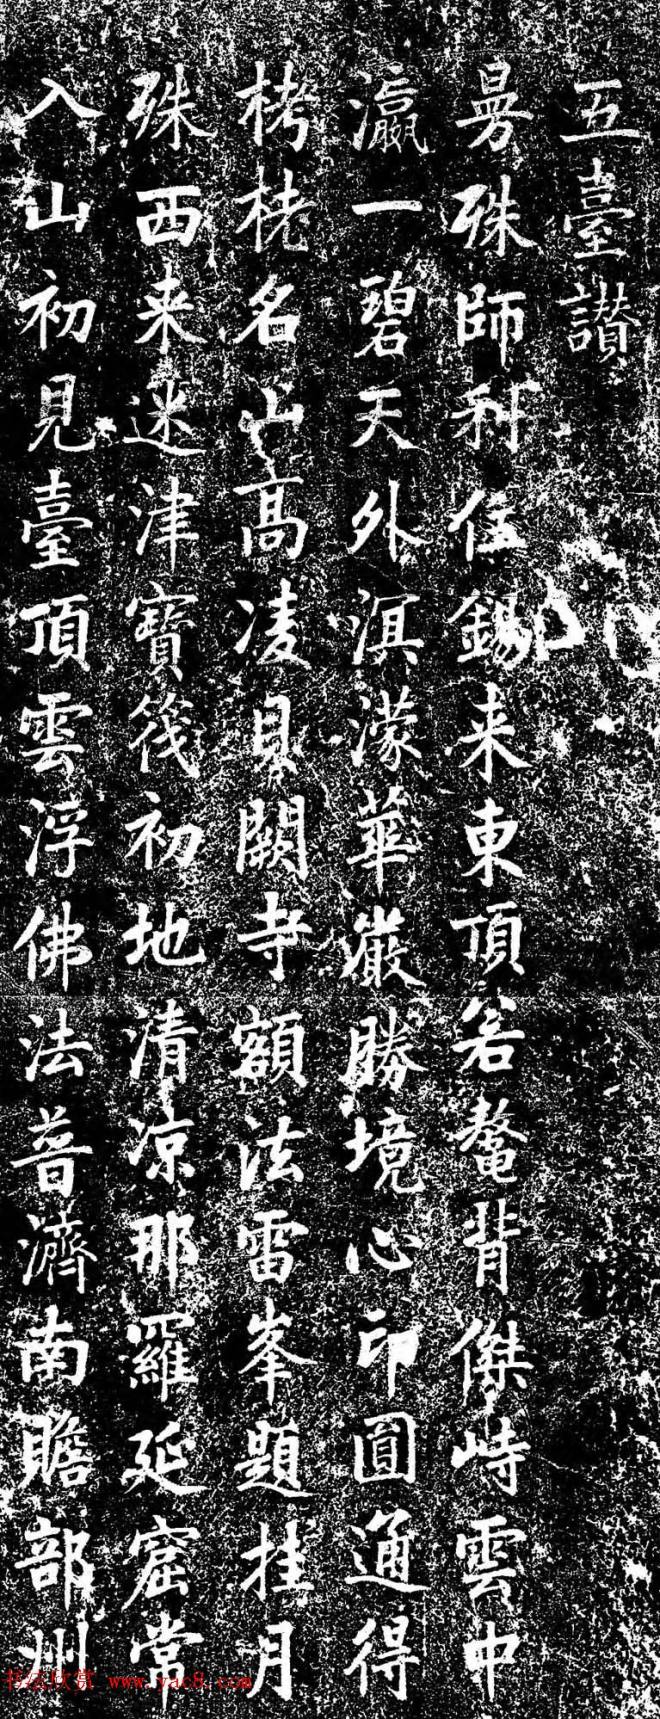 五臺讃
曼殊師利住錫来東頂若鼇背傑峙雲中
瀛一碧天外溟濛華嚴勝境心印圓通得
栲栳名山高凌貝闕寺額法雷峯題挂月
殊西来迷津寶筏初地清凉那羅延窟常
入山初見臺頂雲浮佛法普濟南贍部州
书法欣赏 www.yac8.com